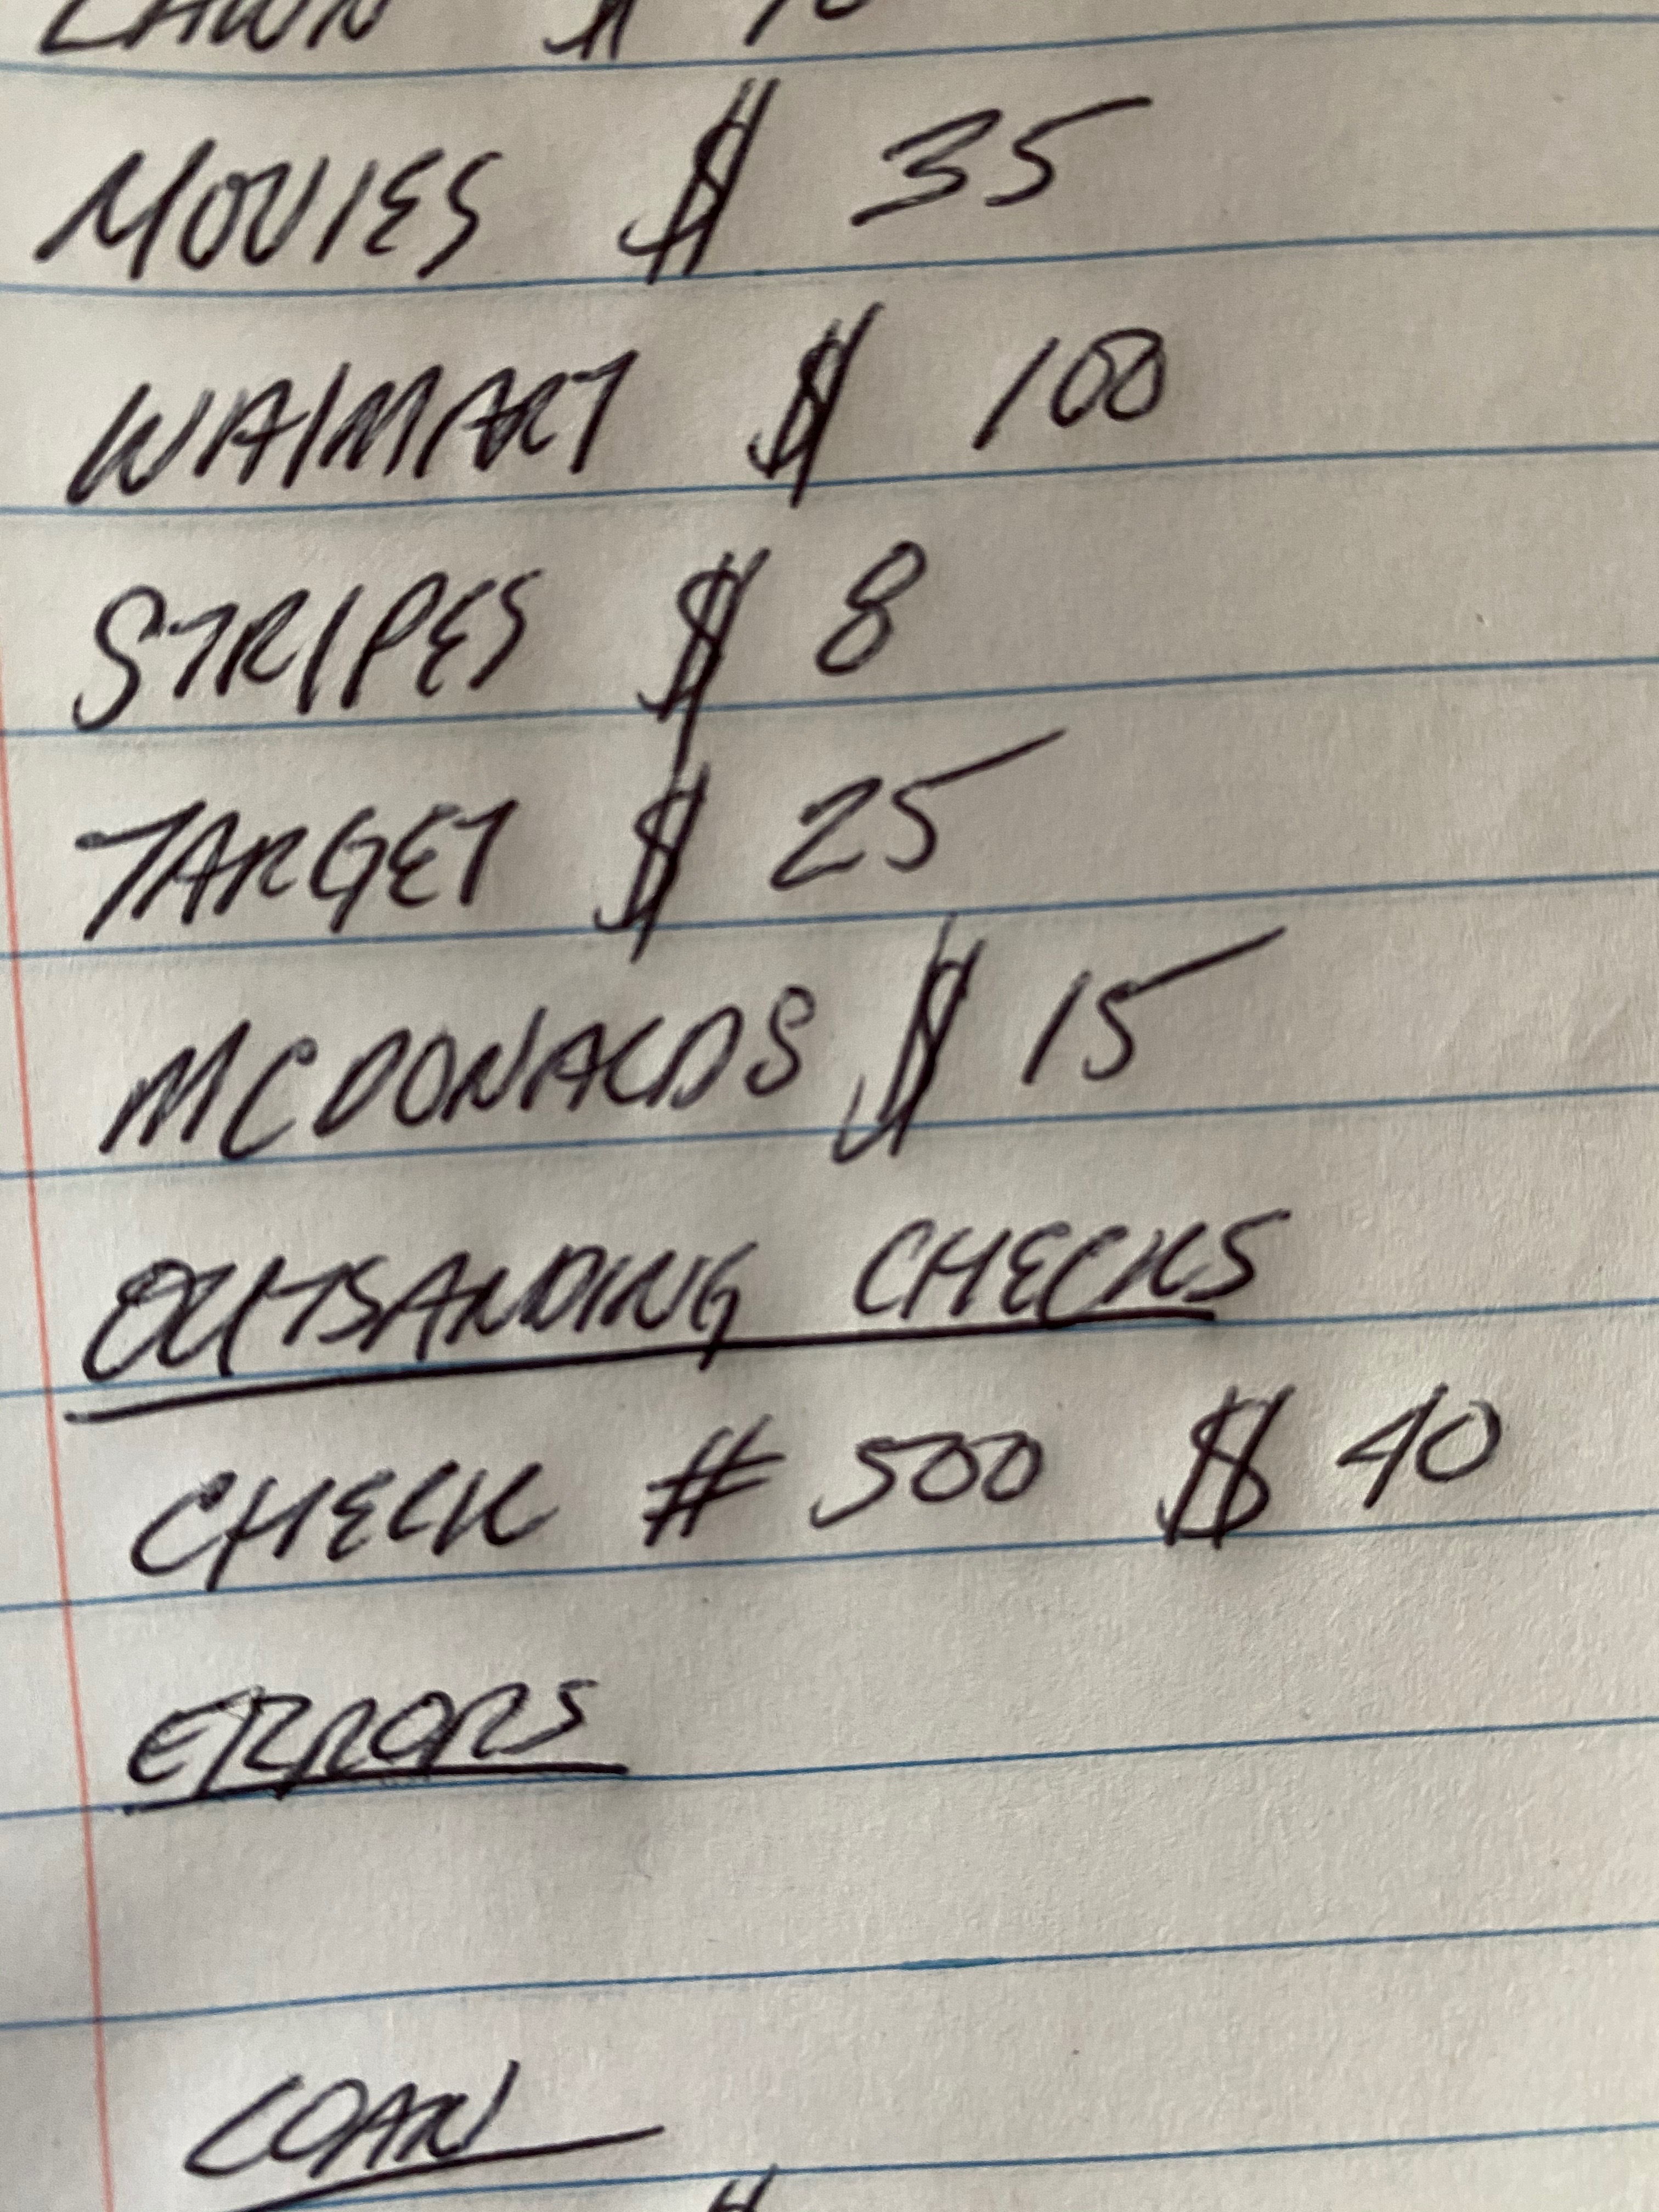 LAWN $
MOVIES $ 35
WALMART $ 100
STRIPES $ 8
TARGET $ 25
MCDONALDS $ 15
OUTSANDING CHECKS
CHECK # 500 $ 40
ERRORS
LOAN
$